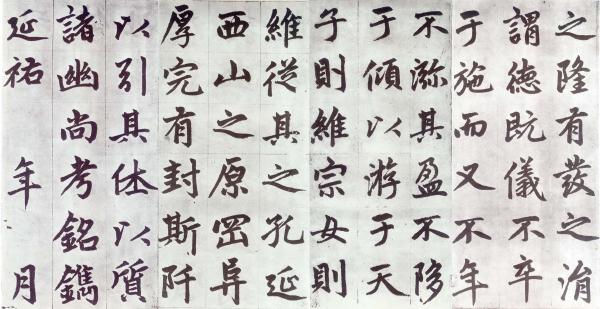 之隆有發之
謂德既儀不卒
于施而又不年
不沵其盈不陊
于傾以游于天
子則維宗女則
維從其之孔延
西山之原
厚完有封斯阡
以引其休以質
諸幽尚考銘鐫
延祐 年 月